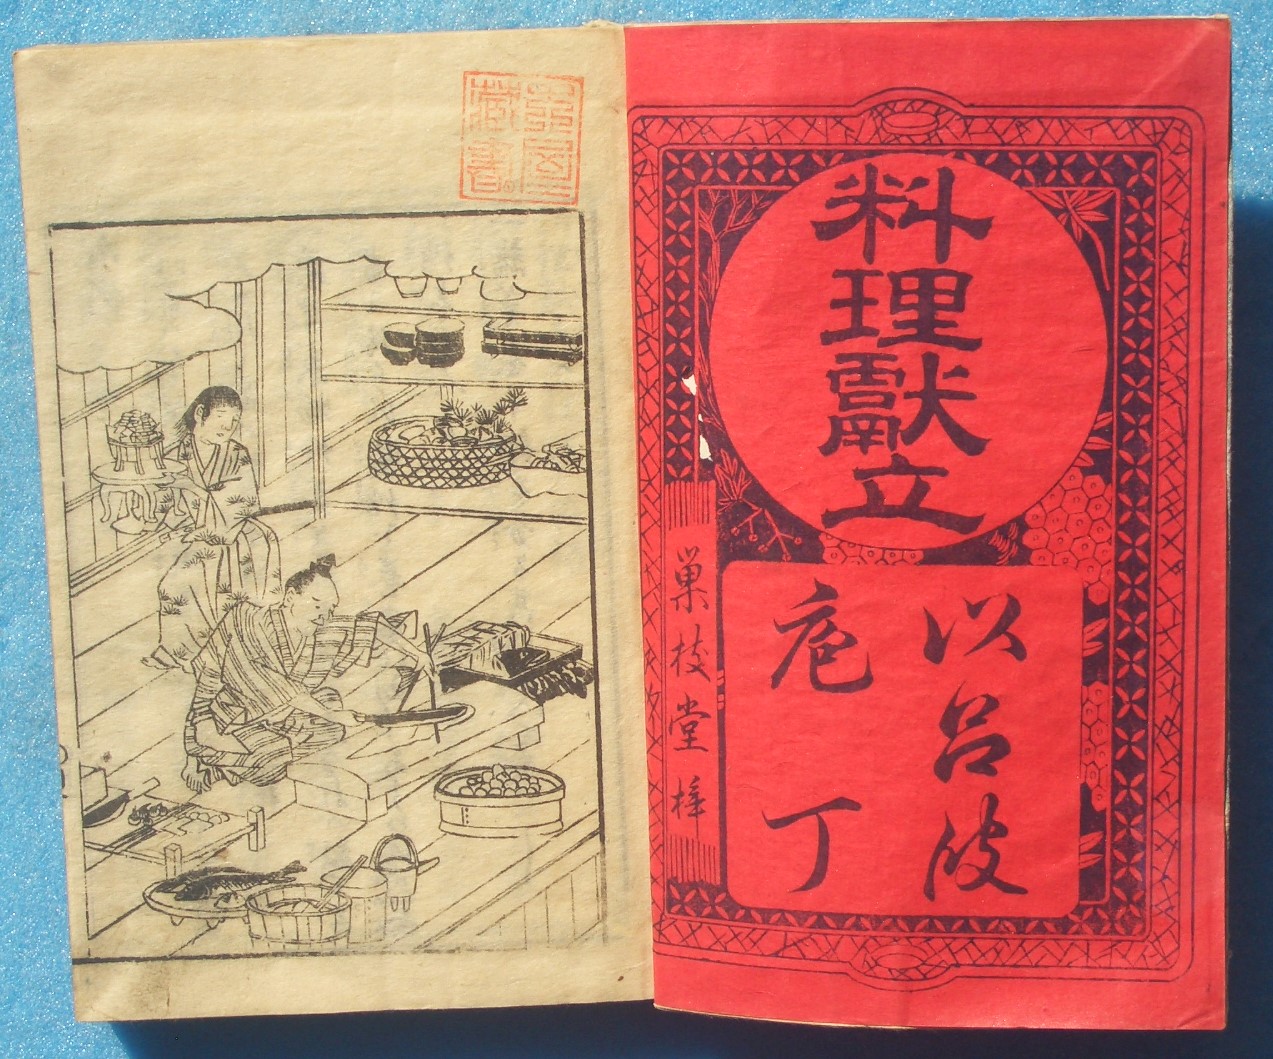 料理獻立
以呂波
庖丁
巣枝堂梓
藏書